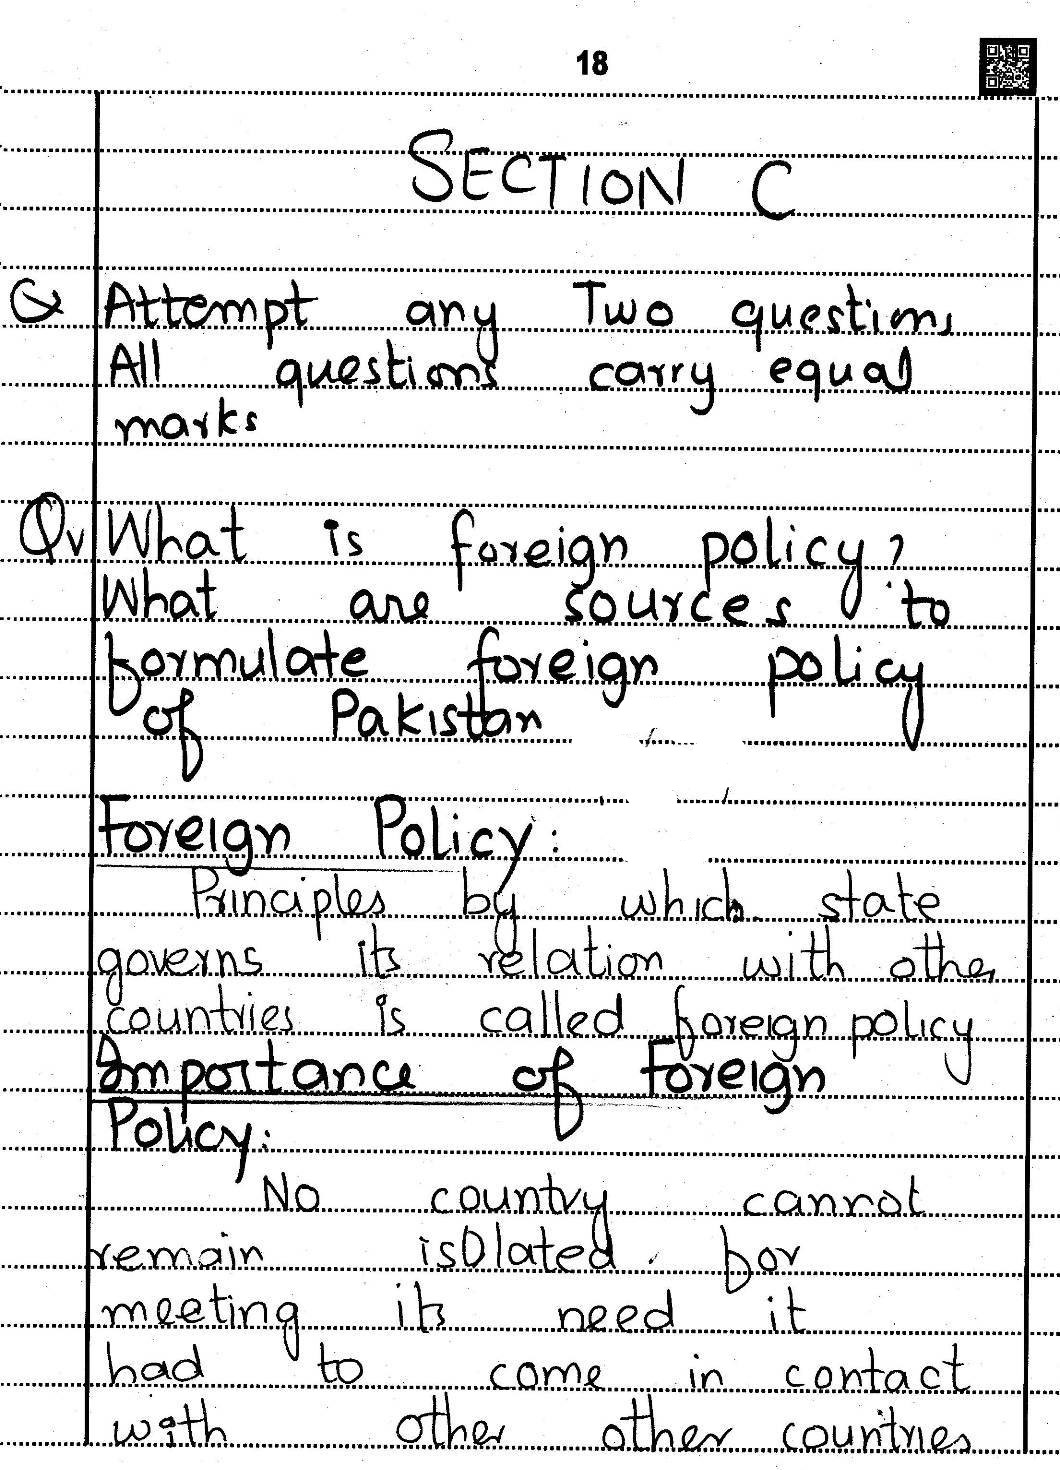 18
SECTION C
Q Attempt any Two questions
All questions carry equal
marks
Qv What is foreign policy?
What are sources to
formulate foreign policy
of Pakistan
Foreign Policy:
Principles by which state
governs its relation with other
countries is called foreign policy
Importance of Foreign
Policy:
No country cannot
remain isolated. for
meeting its need it
had to come in contact
with other other countries